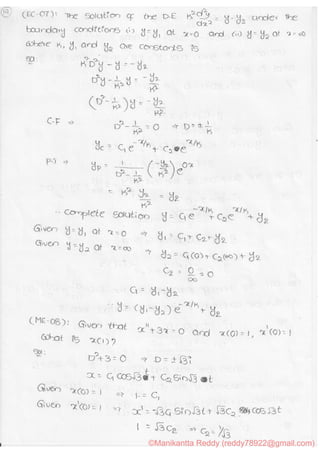 (EC-07): The solution of the D.E k² d²y/dx² = y-y₂ under the
boundary conditions (i) y=y₁ at x=0 and (ii) y=y₂ at x=∞
where k, y₁ and y₂ are constants is
k²D²y - y = -y₂
D²y - 1/k² y = -y₂/k²
(D² - 1/k²)y = -y₂/k²
C.F ⇒ D² - 1/k² = 0 ⇒ D = ± 1/k
y_c = C₁e^(-x/k) + C₂e^(x/k)
P.I ⇒ y_p = 1/(D² - 1/k²) (-y₂/k²) e^(0x)
= k² y₂/k² = y₂
∴ complete solution y = C₁e^(-x/k) + C₂e^(x/k) + y₂
Given y=y₁ at x=0 ⇒ y₁ = C₁+C₂+y₂
Given y=y₂ at x=∞ ⇒ y₂ = C₁(0)+C₂(∞)+y₂
C₂ = 0/∞ = 0
C₁ = y₁-y₂
∴ y = (y₁-y₂)e^(-x/k) + y₂
(ME-08): Given that x''+3x=0 and x(0)=1, x'(0)=1
what is x(1)?
D²+3=0 ⇒ D=±√3i
x = C₁cos√3t + C₂ sin√3t
Given x(0)=1 ⇒ 1=C₁
Given x'(0)=1 ⇒ x' = -√3C₁ sin√3t + √3C₂ cos√3t
1 = √3C₂ ⇒ C₂ = 1/√3
©Manikantta Reddy (reddy78922@gmail.com)